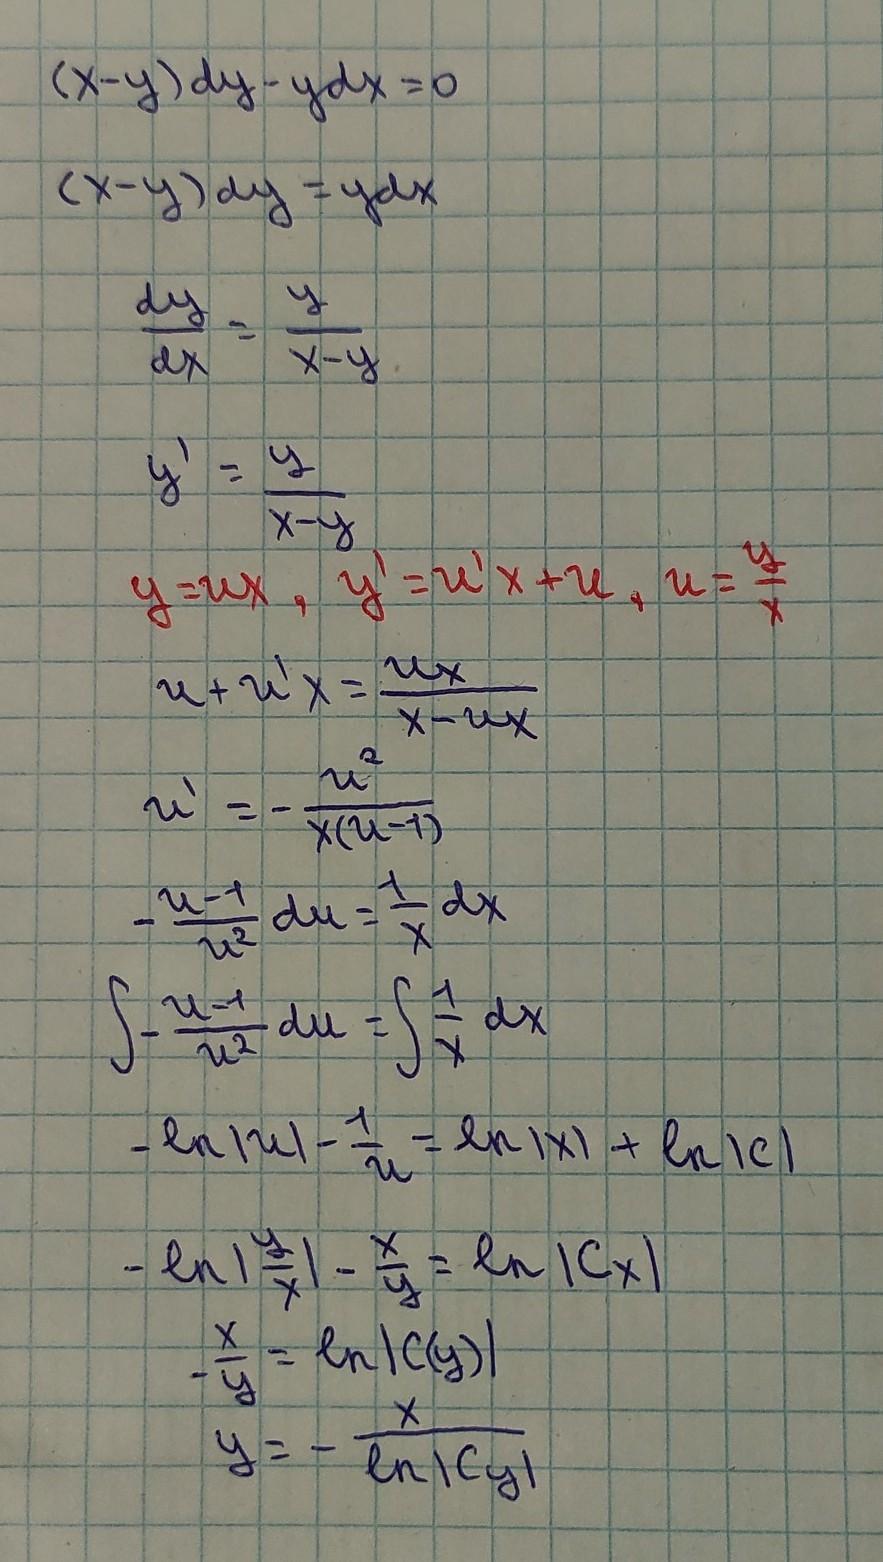 (x-y)dy-ydx=0
(x-y)dy=ydx
dy/dx = y/(x-y)
y' = y/(x-y)
y=ux, y'=u'x+u, u=y/x
u+u'x=ux/(x-ux)
u' = -u²/(x(u-1))
-(u-1)/u² du = 1/x dx
∫-(u-1)/u² du = ∫1/x dx
-ln|u| - 1/u = ln|x| + ln|C|
-ln|y/x| - x/y = ln|Cx|
-x/y = ln|C(y)|
y = - x/ln|Cy|